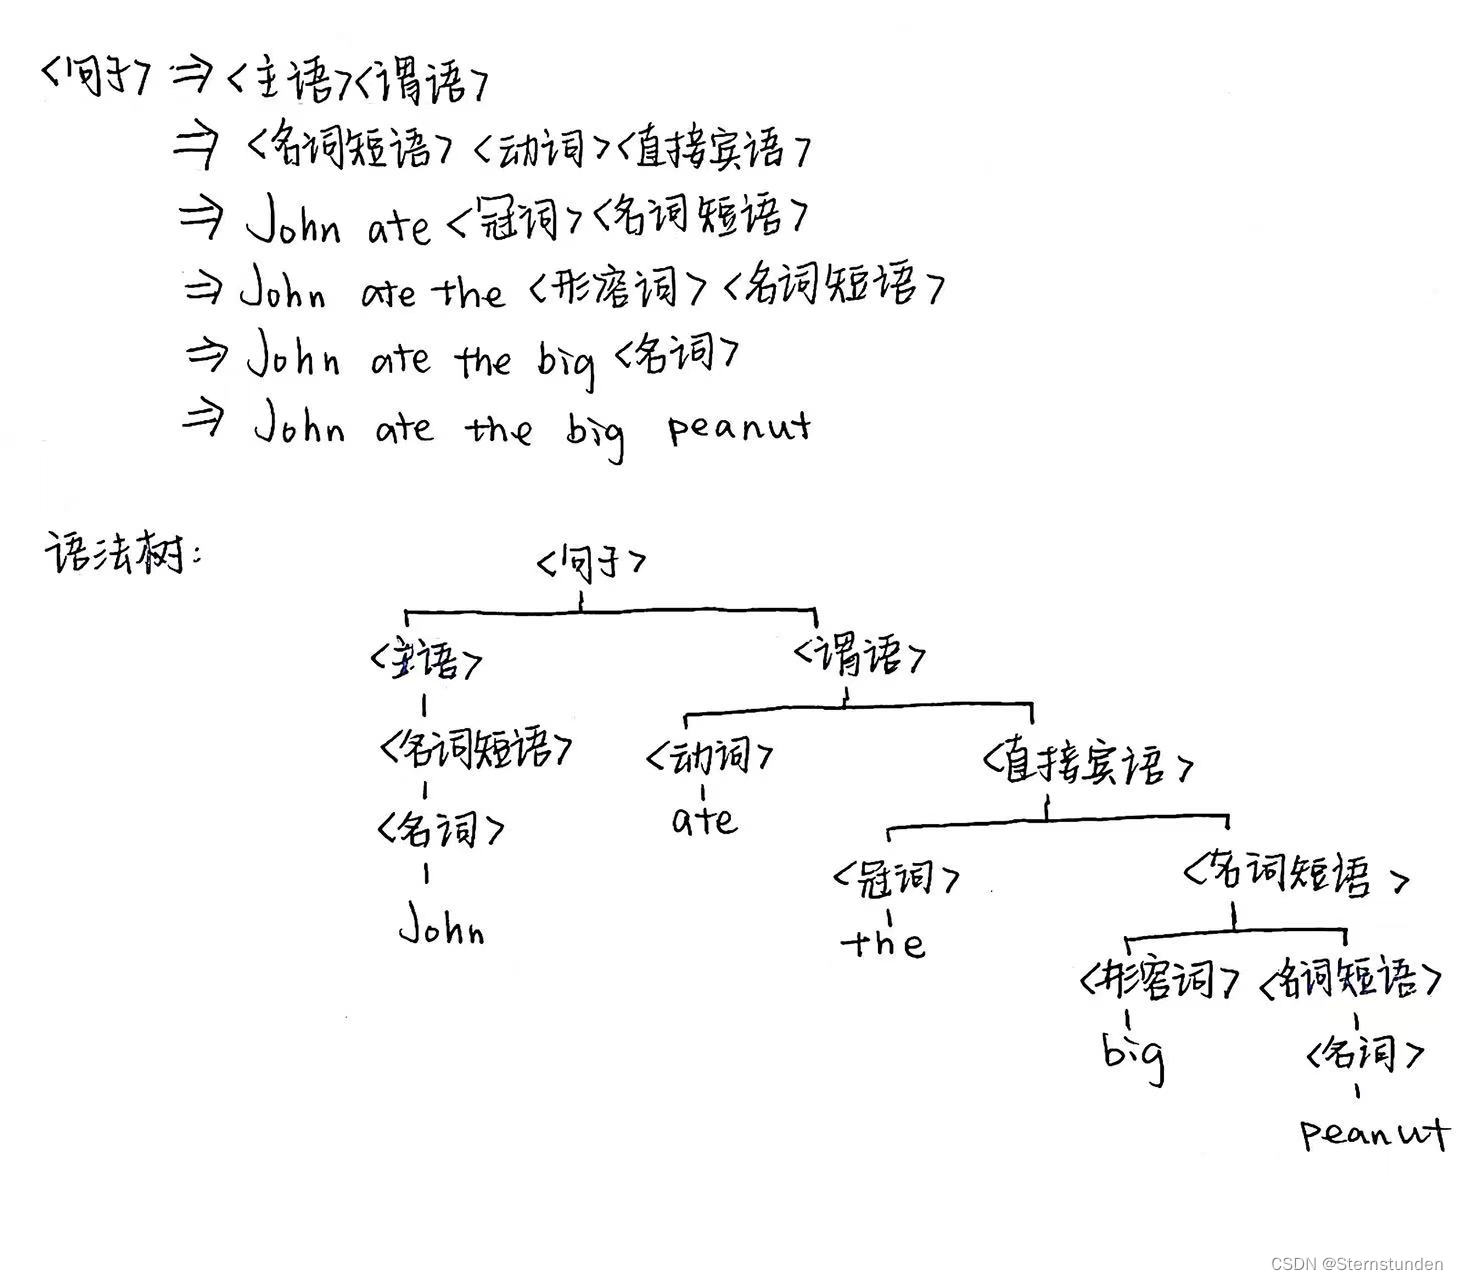 <句子> ⇒ <主语><谓语>
⇒ <名词短语> <动词><直接宾语>
⇒ John ate <冠词><名词短语>
⇒ John ate the <形容词> <名词短语>
⇒ John ate the big <名词>
⇒ John ate the big peanut
语法树:
<句子>
<主语> <谓语>
<名词短语> <动词> <直接宾语>
<名词> ate
<冠词> <名词短语>
John the
<形容词> <名词短语>
big <名词>
peanut
CSDN @Sternstunden